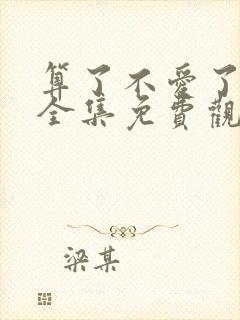 算了不愛了
全集免費觀
梁某